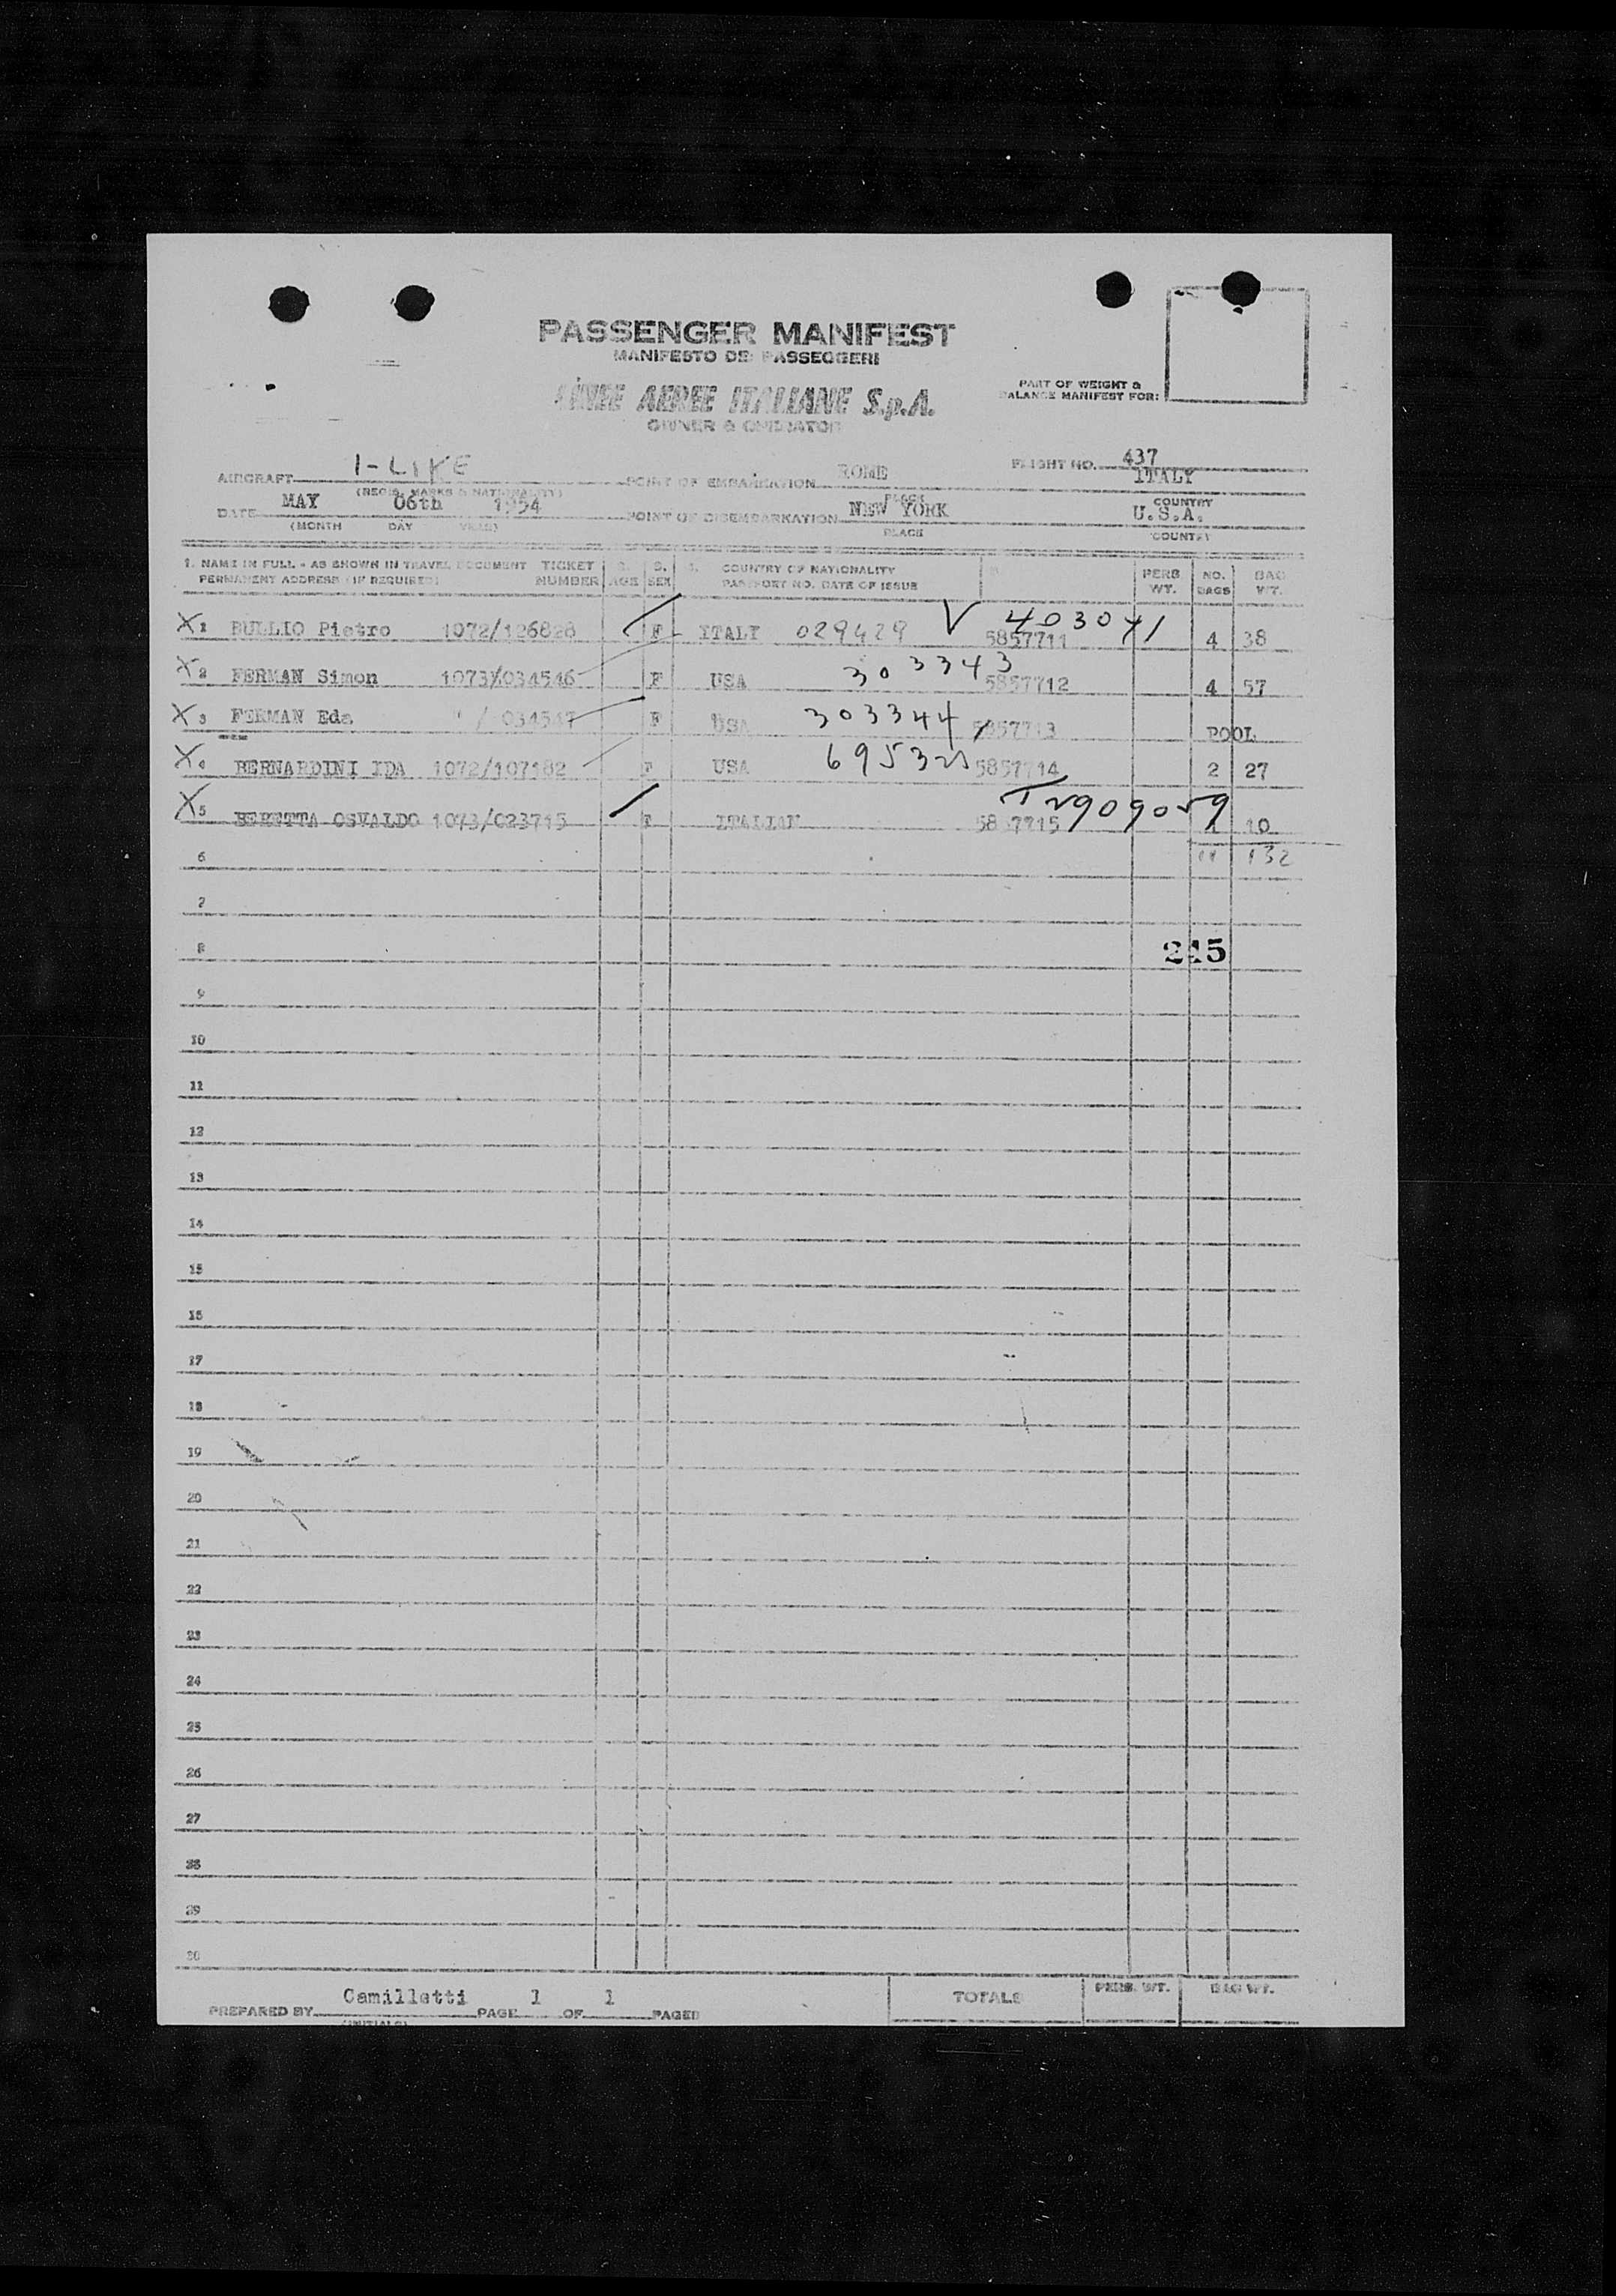 PASSENGER MANIFEST
MANIFESTO DEI PASSEGGERI
LINEE AEREE ITALIANE S.p.A.
OWNER & OPERATOR
PART OF WEIGHT &
BALANCE MANIFEST FOR:
AIRCRAFT I-LIKE POINT OF EMBARKATION ROME FLIGHT NO. 437
ITALY
(REGIS. MARKS & NATIONALITY) PLACE COUNTRY
DATE MAY 06th 1954 POINT OF DISEMBARKATION NEW YORK U.S.A.
(MONTH DAY YEAR) PLACE COUNTRY
1. NAME IN FULL - AS SHOWN IN TRAVEL DOCUMENT TICKET 2. 3. 4. COUNTRY OF NATIONALITY PERS. NO. BAG
PERMANENT ADDRESS (IF REQUIRED) NUMBER AGE SEX PASSPORT NO. DATE OF ISSUE WT. BAGS WT.
X 1 BULLIO Pietro 1072/126828 F ITALY 029429 V 403041 5857711 4 38
X 2 FERMAN Simon 1073/034546 F USA 303343 5857712 4 57
X 3 FERMAN Eda " / 034547 F USA 303344 5857713 POOL
X 4 BERNARDINI IDA 1072/107182 F USA 5857714 2 27
X 5 BERETTA OSVALDO 1073/023715 F ITALIAN 5857715 1 10
6 11 132
7
8 245
9
10
11
12
13
14
15
16
17
18
19
20
21
22
23
24
25
26
27
28
29
30
PREPARED BY Camilletti PAGE 1 OF 1 PAGES TOTALS PERS. WT. BAG WT.
(INITIALS)